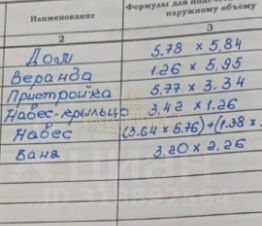 Наименование
Формулы для подсч
наружному объему
2 3
Дом 5.78 × 5.84
Веранда 1.26 × 5.95
Пристройка 5.77 × 3.34
Навес-крыльцо 3.42 × 1.26
Навес (3.64 × 6.76)+(1.38 ×
Баня 3.20 × 2.26